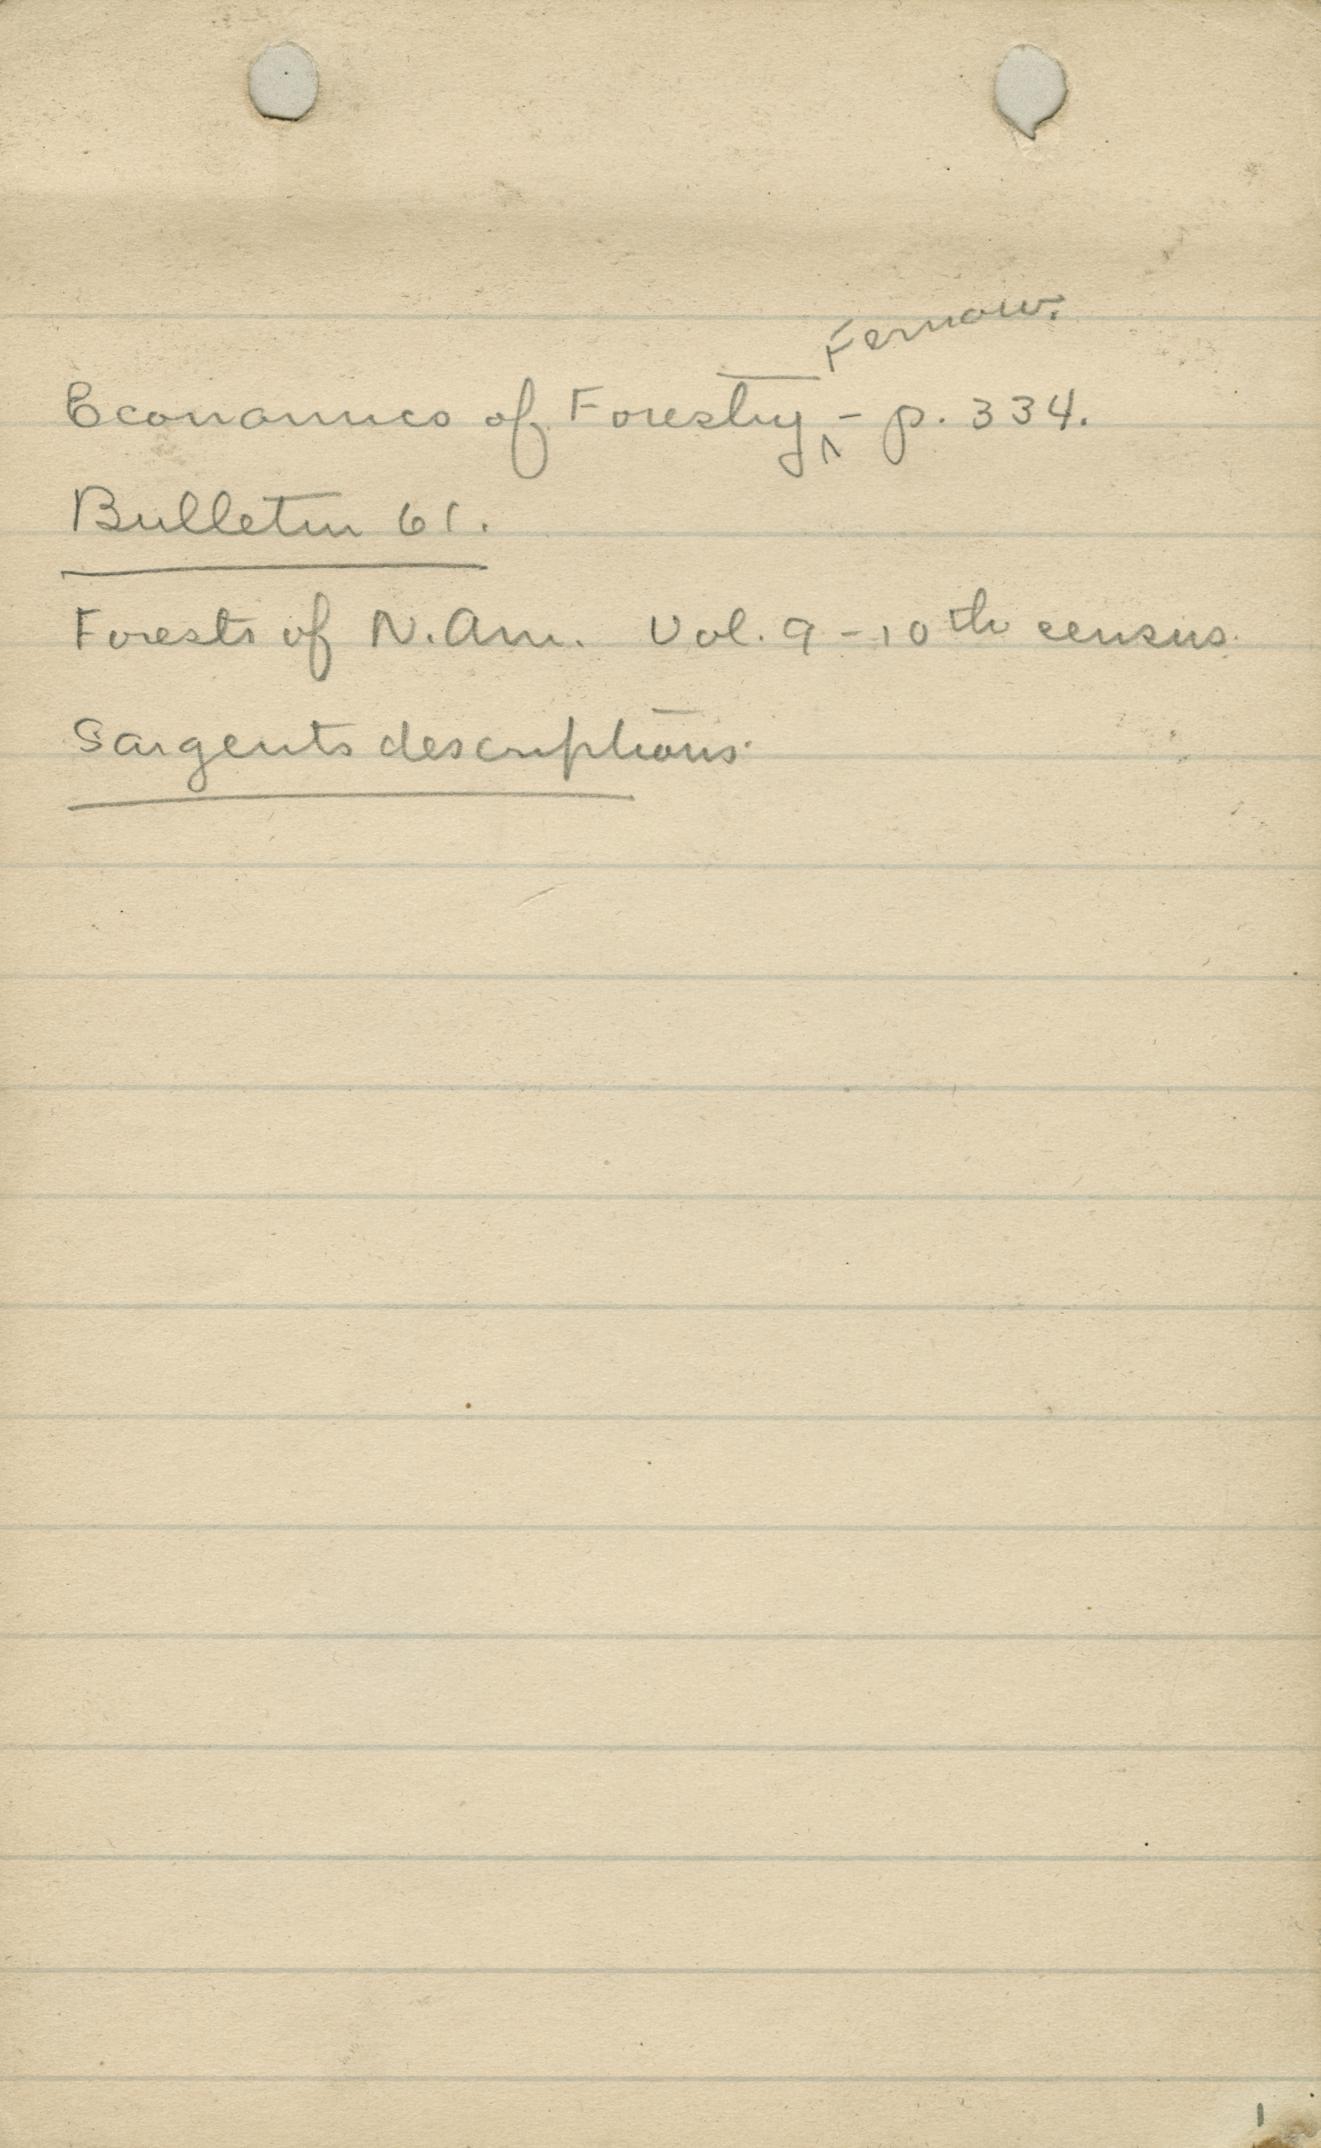 Fernow.
Economics of Forestry ^ - p. 334.
Bulletin 61.
Forests of N. Am. Vol. 9 - 10th census.
Sargents descriptions.
1